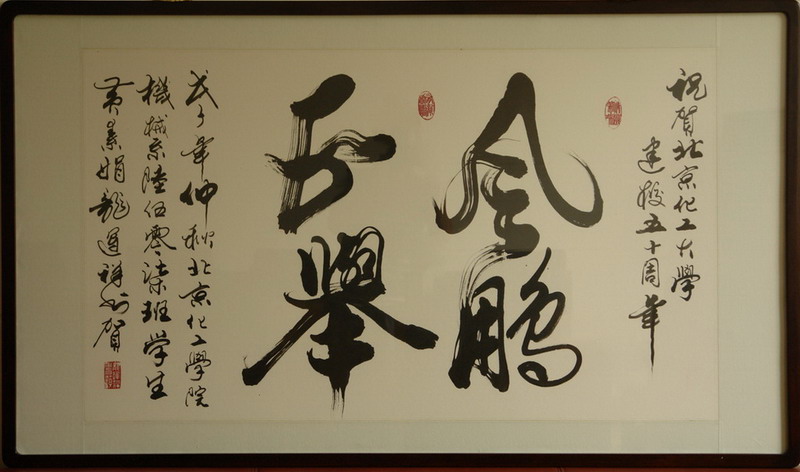 祝賀北京化工大學
建校五十周年
金鵬
舉
戊子年仲秋北京化工學院
機械系陸伍零班学生
黄素娟龍運祥賀